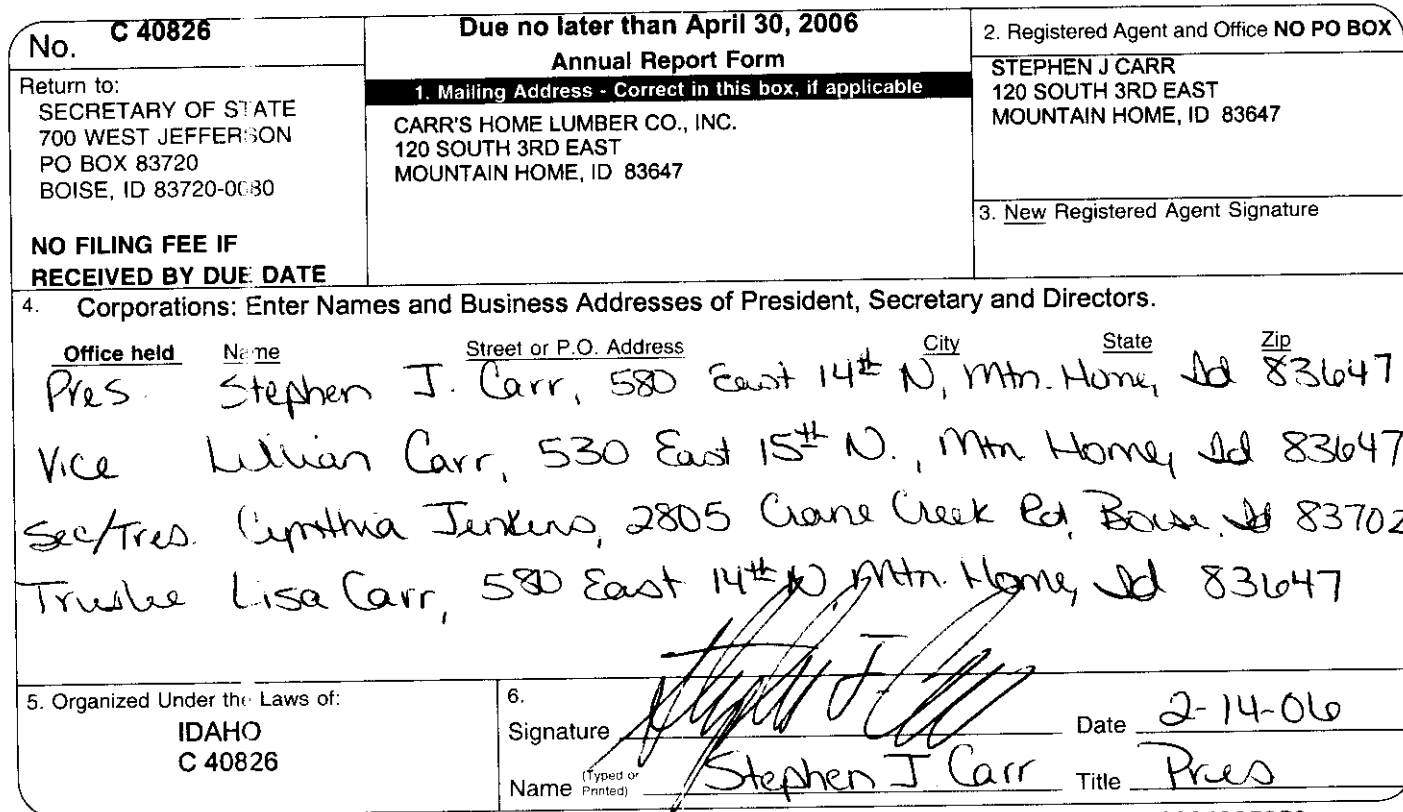 No. C 40826
Return to:
SECRETARY OF STATE
700 WEST JEFFERSON
PO BOX 83720
BOISE, ID 83720-0080
NO FILING FEE IF
RECEIVED BY DUE DATE
Due no later than April 30, 2006
Annual Report Form
1. Mailing Address - Correct in this box, if applicable
CARR'S HOME LUMBER CO., INC.
120 SOUTH 3RD EAST
MOUNTAIN HOME, ID 83647
2. Registered Agent and Office NO PO BOX
STEPHEN J CARR
120 SOUTH 3RD EAST
MOUNTAIN HOME, ID 83647
3. New Registered Agent Signature
4. Corporations: Enter Names and Business Addresses of President, Secretary and Directors.
Office held Name Street or P.O. Address City State Zip
Pres. Stephen J. Carr, 580 East 14th N, Mtn. Home, Id 83647
Vice Lillian Carr, 530 East 15th N., Mtn Home, Id 83647
Sec/Tres. Cynthia Jenkins, 2805 Crane Creek Rd, Boise, Id 83702
Trustee Lisa Carr, 580 East 14th N, Mtn. Home, Id 83647
5. Organized Under the Laws of:
IDAHO
C 40826
6.
Signature Stephen J. Carr Date 2-14-06
Name (Typed or Printed) Stephen J Carr Title Pres